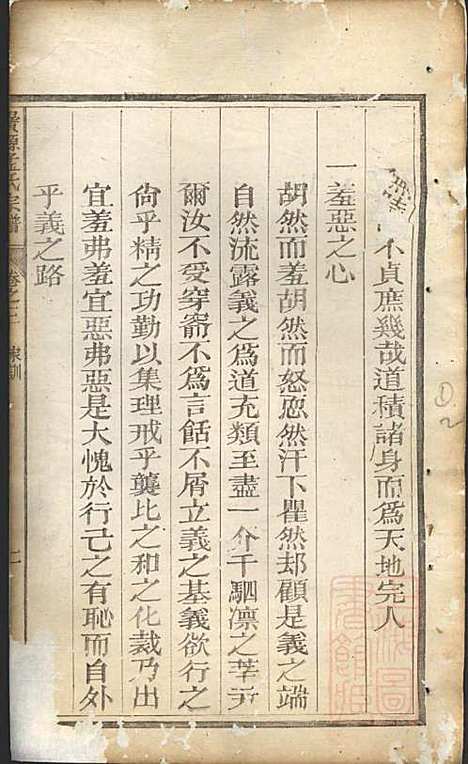 不貞庶幾哉道積諸身而爲天地完人
一羞惡之心
胡然而羞胡然而怒忽然汗下瞿然却顧是義之端
自然流露義之爲道充類至盡一介千駟凛之莘
爾汝不受穿窬不爲言餂不屑立義之基義欲行之
尙乎精之功勤以集理戒乎襲比之和之化裁乃出
宜羞弗羞宜惡弗惡是大愧於行己之有恥而自外
乎義之路
氏宗譜
卷之二
家訓